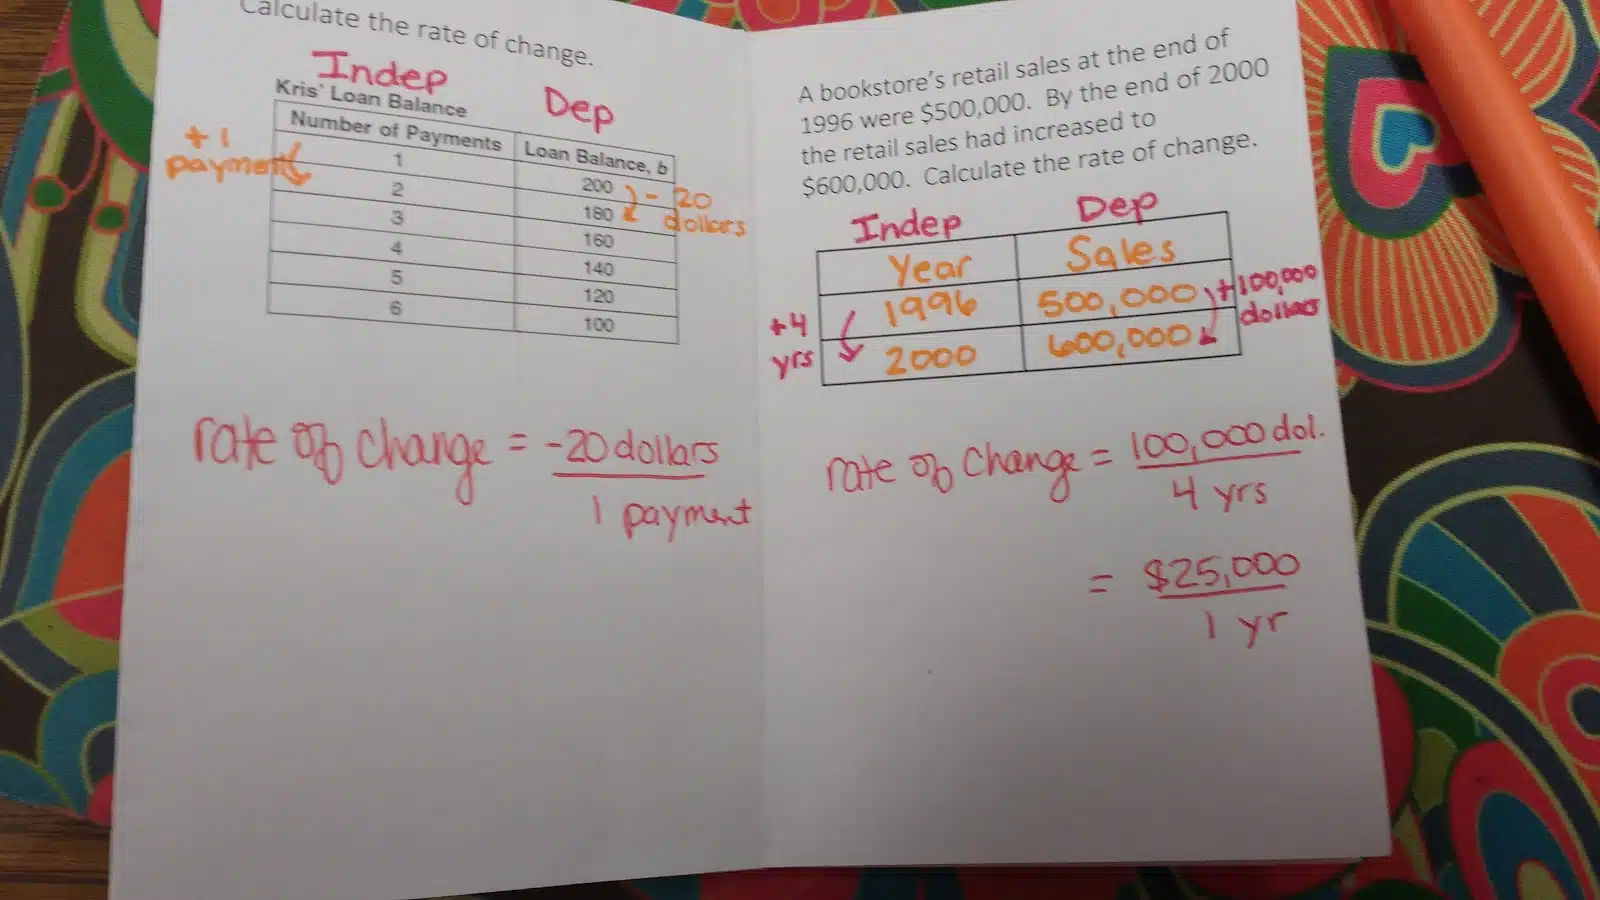 Calculate the rate of change.
Indep
Dep
Kris' Loan Balance
Number of Payments Loan Balance, b
1 200
2 180
3 160
4 140
5 120
6 100
+1
payment
- 20
dollars
rate of change = -20 dollars
1 payment
A bookstore's retail sales at the end of
1996 were $500,000. By the end of 2000
the retail sales had increased to
$600,000. Calculate the rate of change.
Indep Dep
Year Sales
1996 500,000
2000 600,000
+4
yrs
+100,000
dollars
rate of change = 100,000 dol.
4 yrs
= $25,000
1 yr